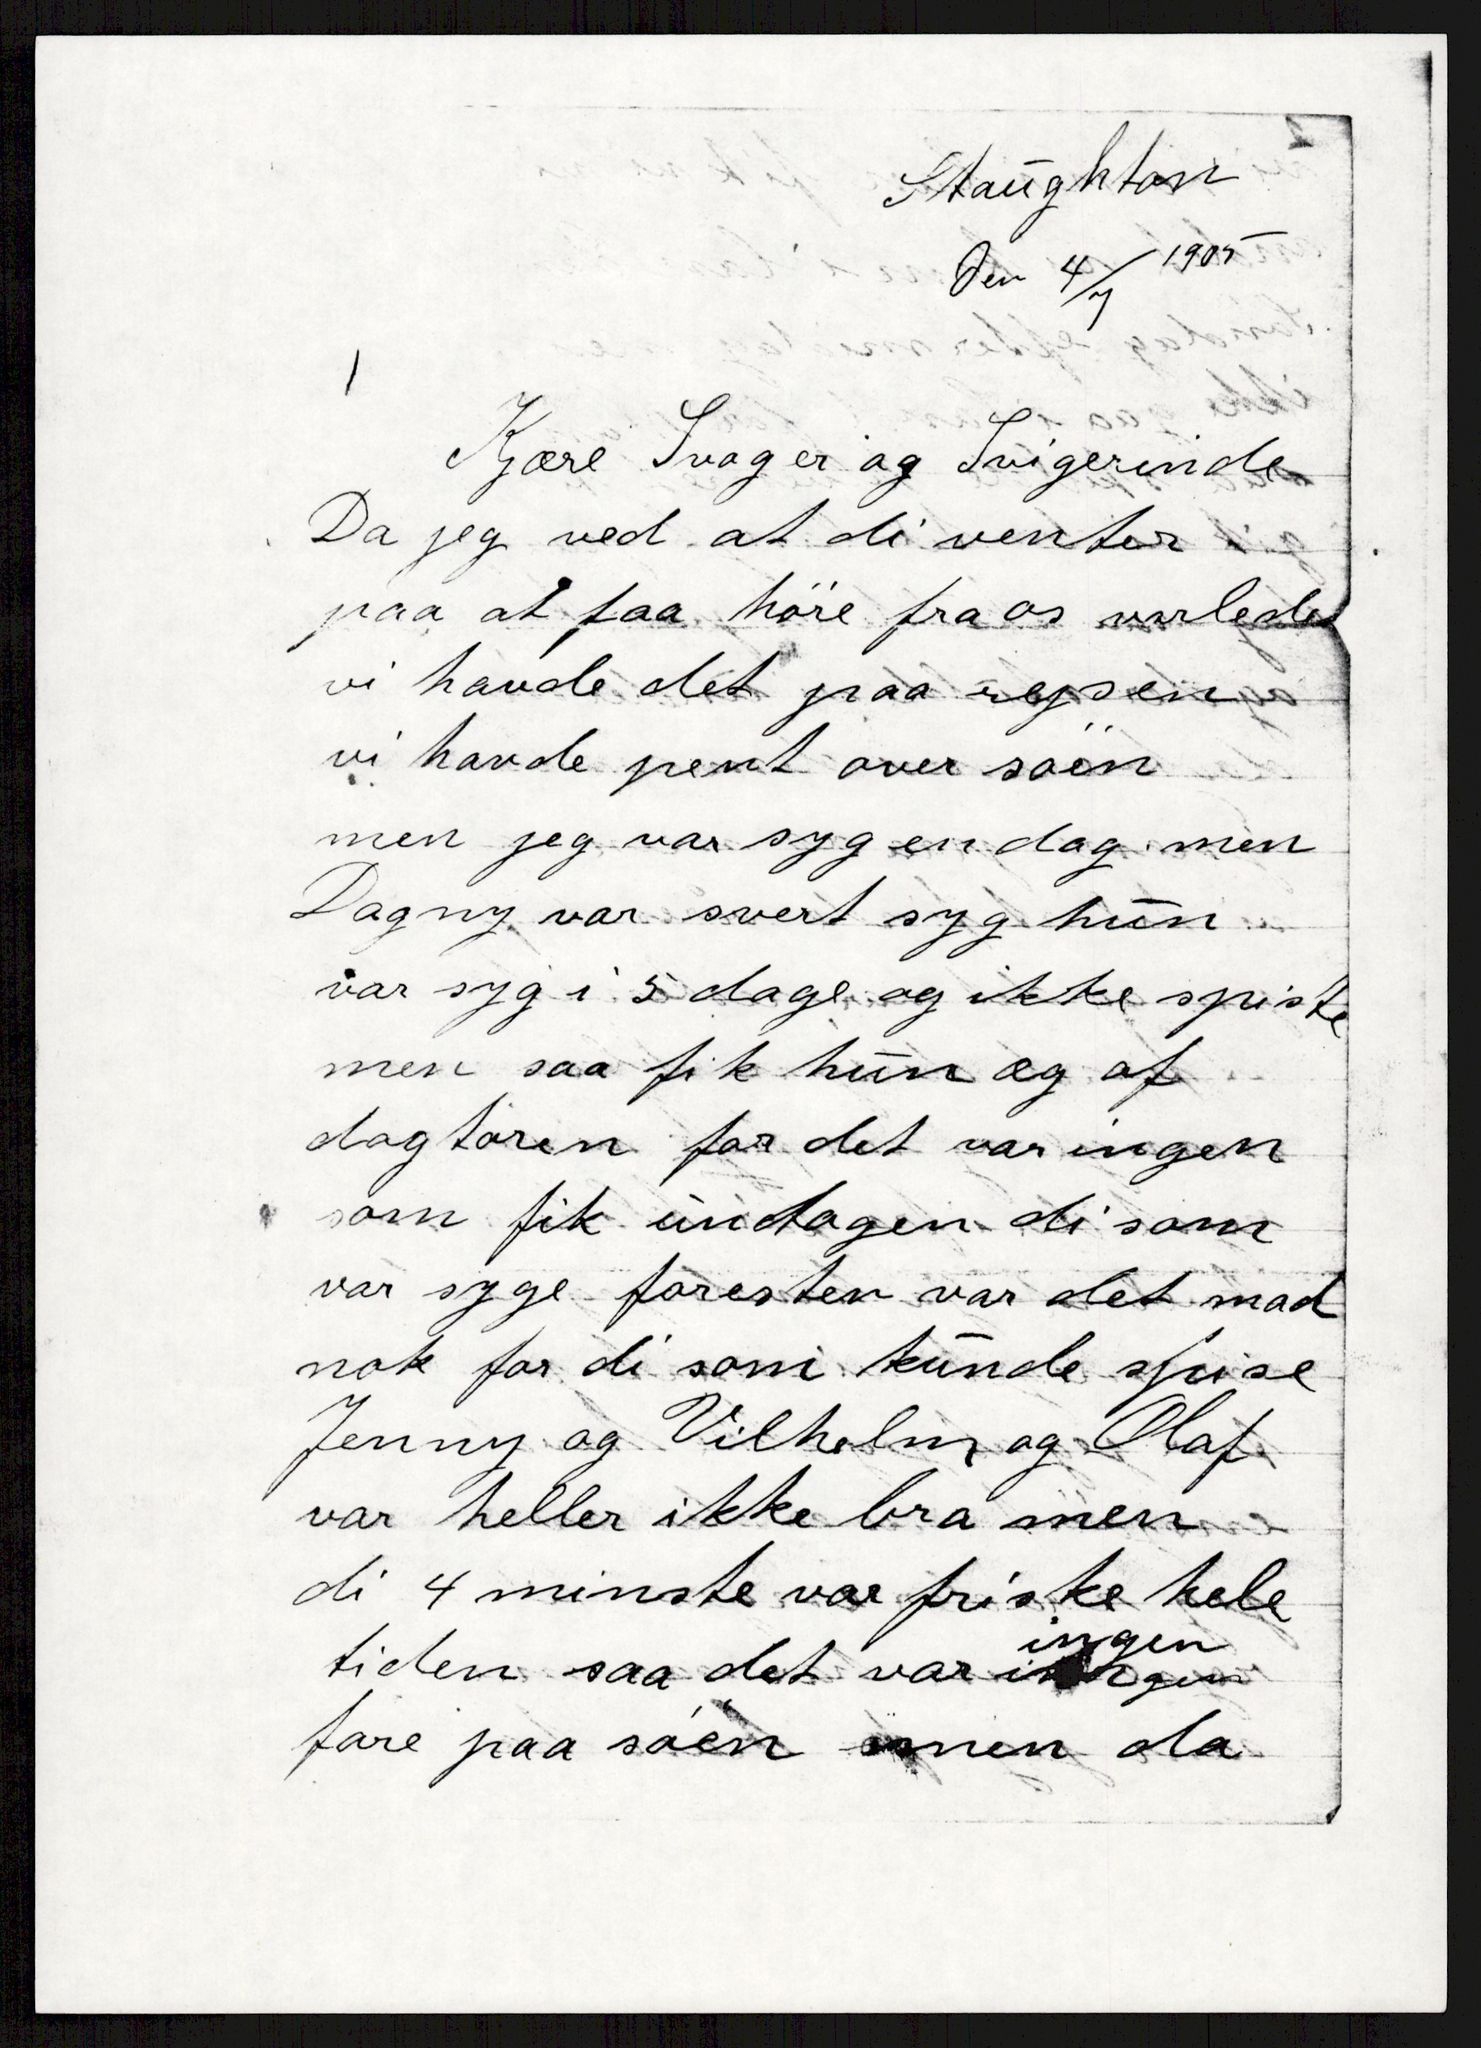 Staughton
Den 4/7 1905
1
Kjære Svoger og Svigerinde
Da jeg ved at di venter
paa at faa høre fra os vorledes
vi havde det paa rejsen
vi havde pent over søen
men jeg var syg en dag men
Dagny var svert syg hun
var syg i 5 dage og ikke spiste
men saa fik hun æg af
dogtoren for det var ingen
som fik undtagen di som
var syge foresten var det mad
nok for di som kunde spise
Jenny og Vilhelm og Olaf
var heller ikke bra men
di 4 minste var friske hele
tiden saa det var ingen
fare paa søen men da